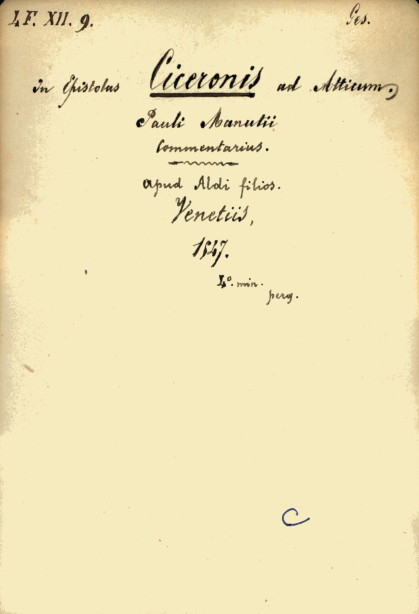 LF. XII. 9. Ges.
In Epistolas Ciceronis ad Atticum,
Pauli Manutii
Commentarius.
apud Aldi filios.
Venetiis,
1547.
4°. min.
perg.
C